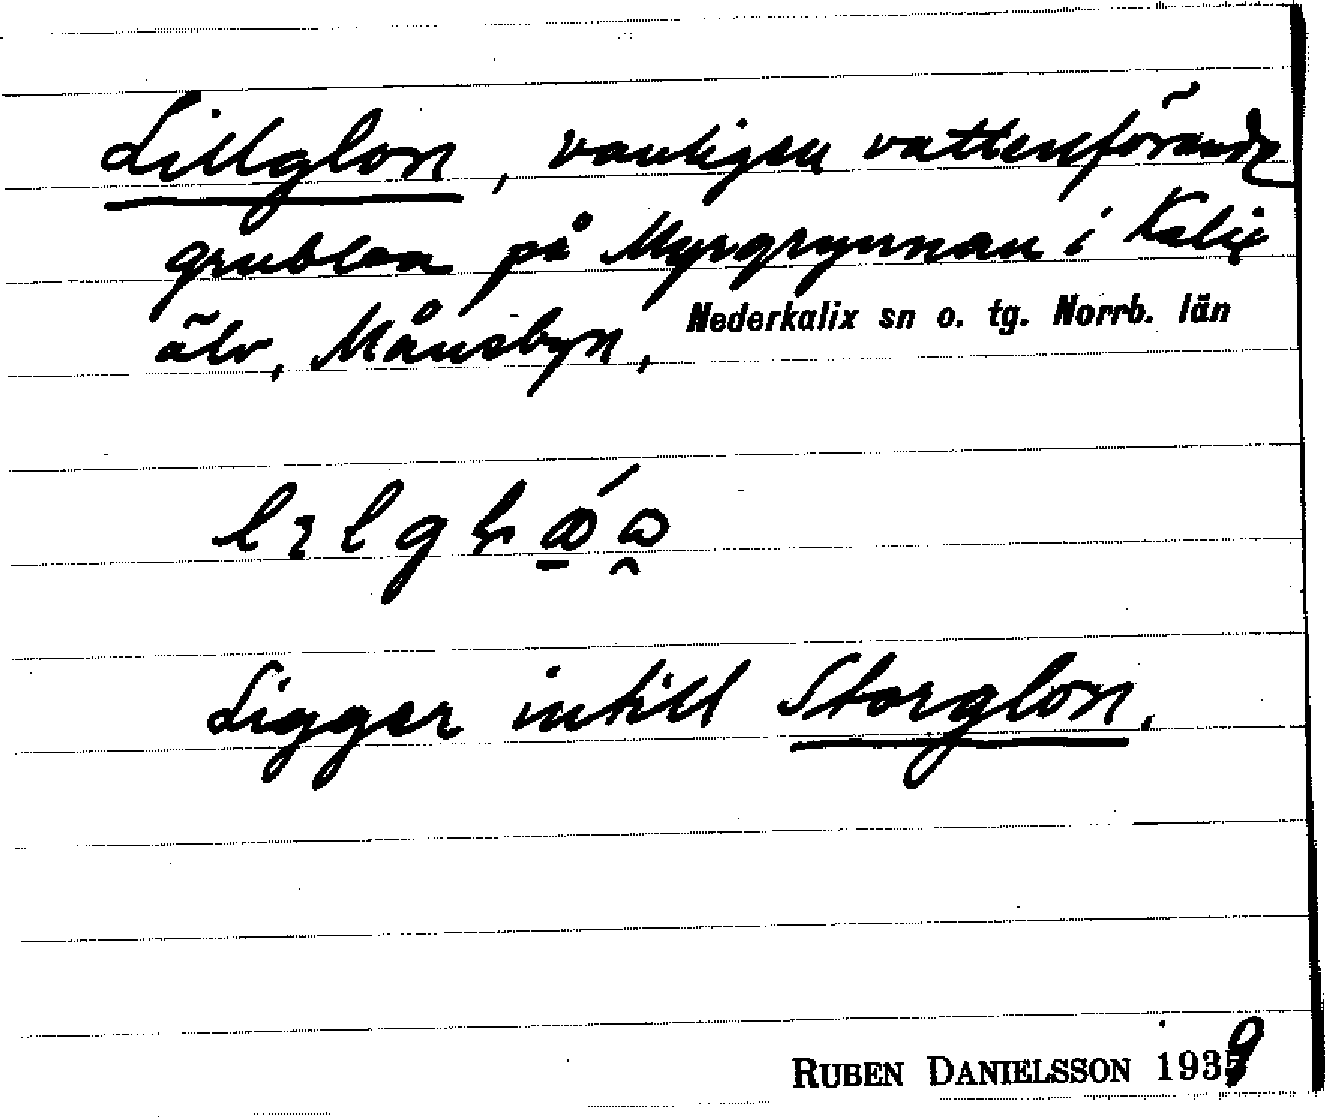 Lillglon, vanligen vattenförande
grubban på Myrgrynnan i Kalix
älv, Månsbyn, Nederkalix sn o. tg. Norrb. län
Ligger intill Storglon.
RUBEN DANIELSSON 1939